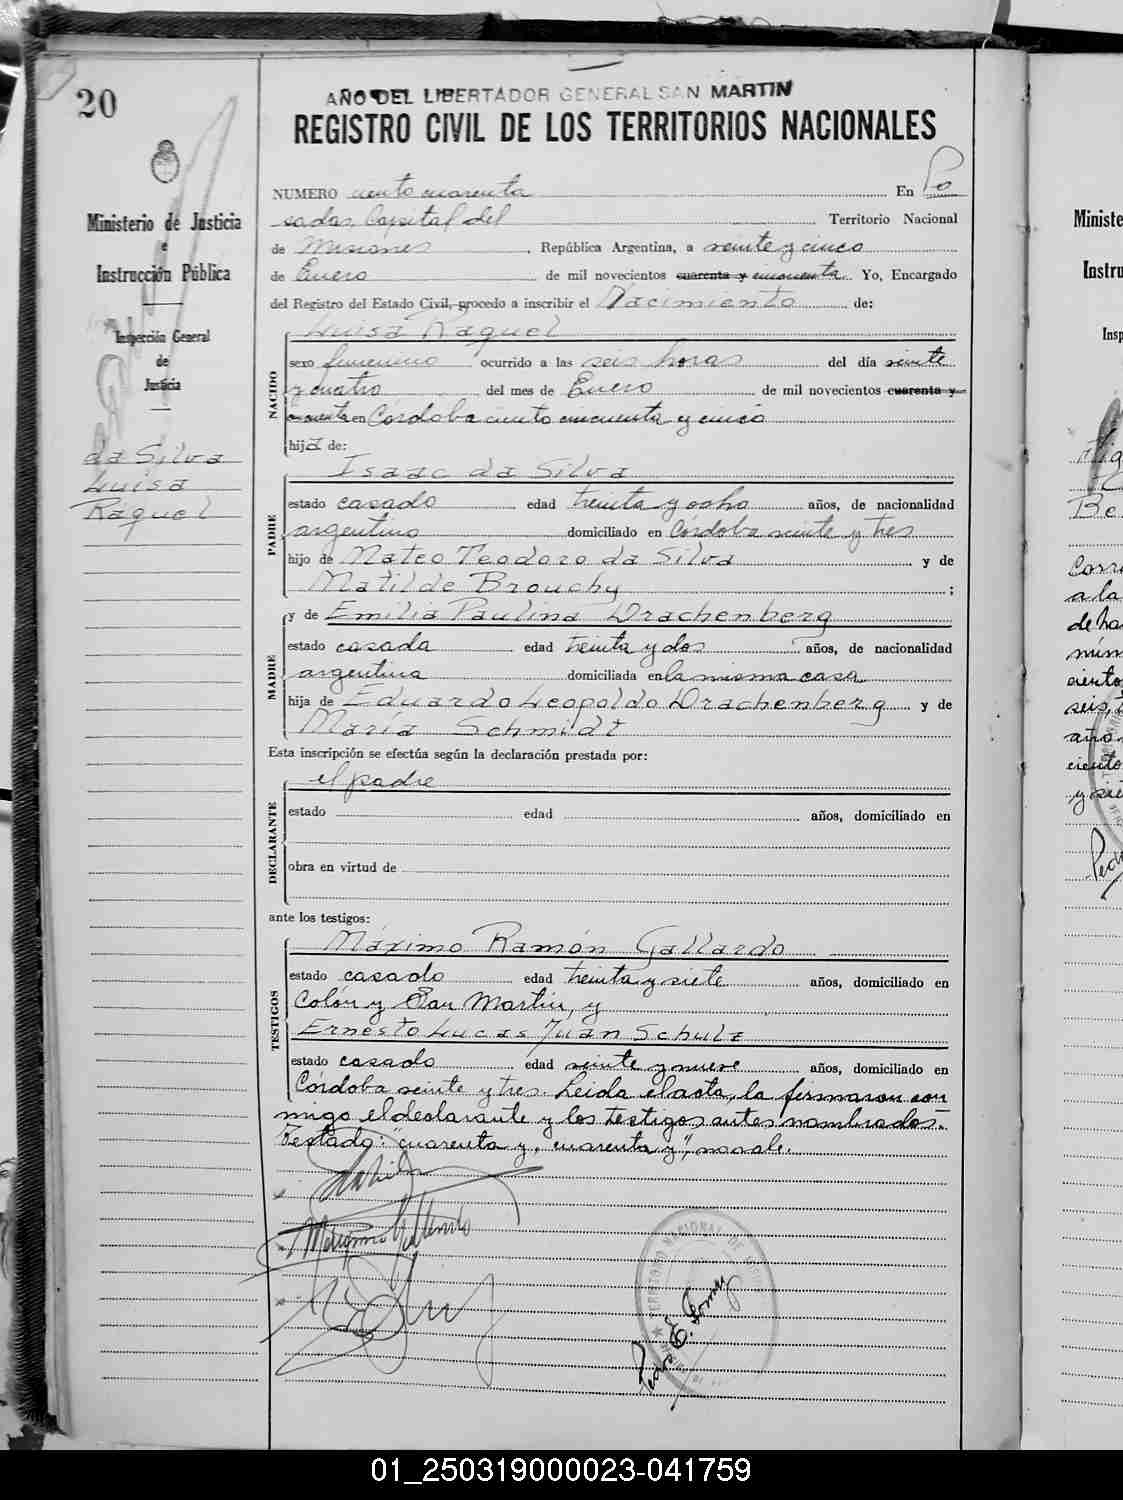 20
AÑO DEL LIBERTADOR GENERAL SAN MARTIN
REGISTRO CIVIL DE LOS TERRITORIOS NACIONALES
Ministerio de Justicia
e
Instrucción Pública
Inspección General
de
Justicia
da Silva
Luisa
Raquel
NUMERO ciento cuarenta En Po
sadas, Capital del Territorio Nacional
de Misiones, República Argentina, a veinte y cinco
de Enero de mil novecientos cuarenta y cincuenta. Yo, Encargado
del Registro del Estado Civil, procedo a inscribir el Nacimiento de:
NACIDO
Luisa Raquel
sexo femenino ocurrido a las seis horas del día veinte
y cuatro del mes de Enero de mil novecientos cuarenta y
cincuenta en Córdoba ciento cincuenta y cinco
hija de:
PADRE
Isaac da Silva
estado casado edad treinta y ocho años, de nacionalidad
argentino domiciliado en Córdoba veinte y tres
hijo de Mateo Teodoro da Silva y de
Matilde Brouchy ;
MADRE
y de Emilia Paulina Drachenberg
estado casada edad treinta y dos años, de nacionalidad
argentina domiciliada en la misma casa
hija de Eduardo Leopoldo Drachenberg y de
María Schmidt
Esta inscripción se efectúa según la declaración prestada por:
DECLARANTE
el padre
estado edad años, domiciliado en
obra en virtud de
ante los testigos:
TESTIGOS
Máximo Ramón Gallardo
estado casado edad treinta y siete años, domiciliado en
Colón y San Martín, y
Ernesto Lucas Juan Schulz
estado casado edad veinte y nueve años, domiciliado en
Córdoba veinte y tres. Leida el acta, la firmaron con
migo el declarante y los testigos antes nombrados.
Testado: "cuarenta y, cuarenta y", no vale.
TERRITORIO NACIONAL DE
Pedro E. Gomez
Ministe
Instru
Insp
Be
Corr
a la
de ha
núm
ciento
seis,
año
ciento
y sie
Ped
01_250319000023-041759